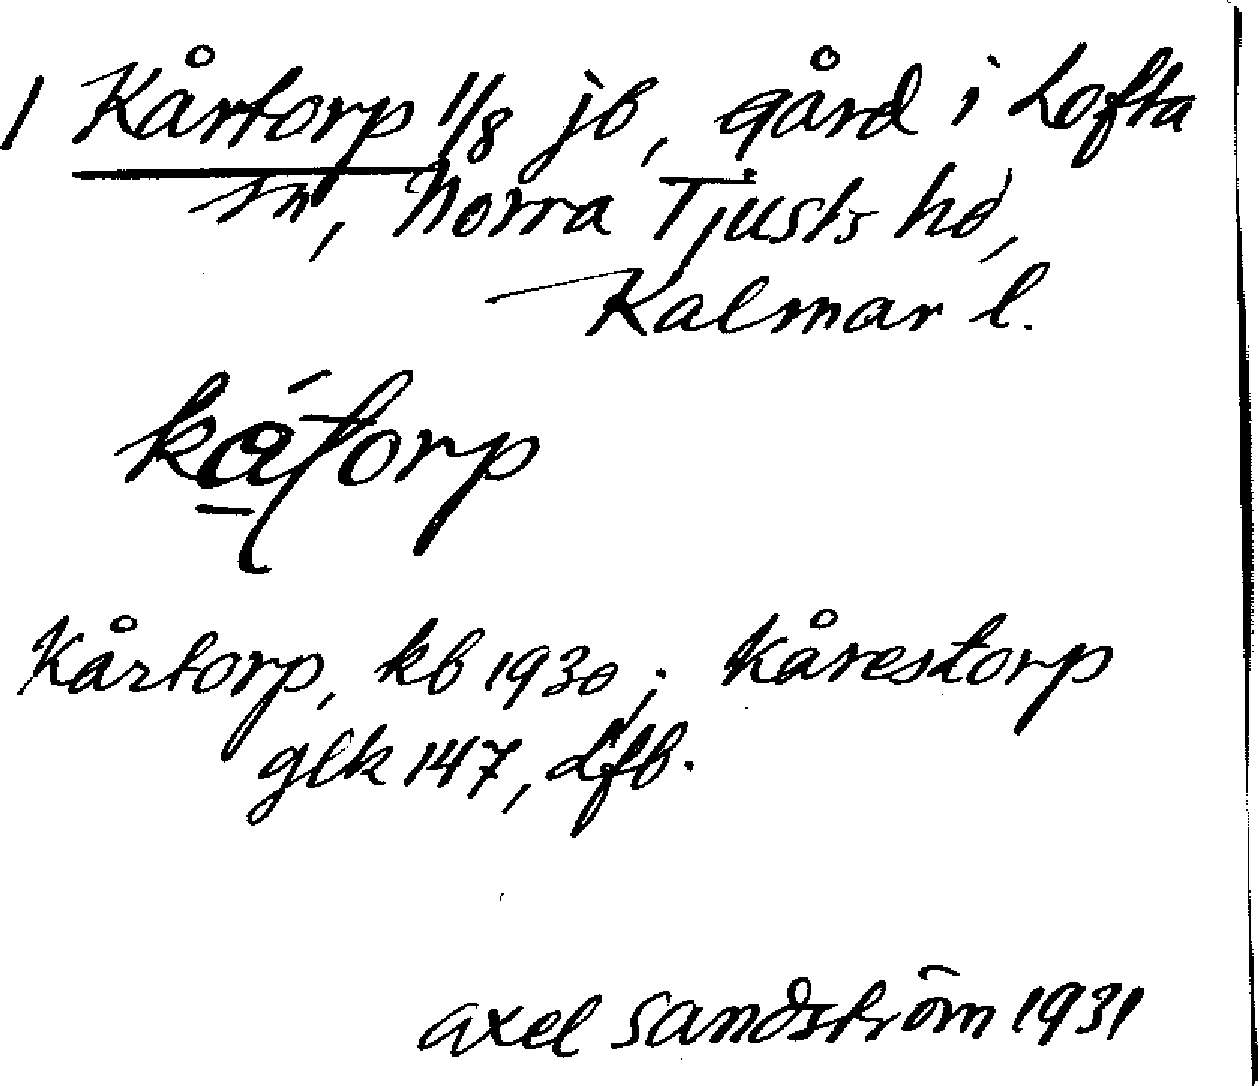 1 Kårtorp 1/8 jb, gård i Lofta
sn, Norra Tjusts hd,
Kalmar l.
kátorp
Kårtorp, kb 1930; Kårestorp
glk 147, dfb.
Axel Sandström 1931